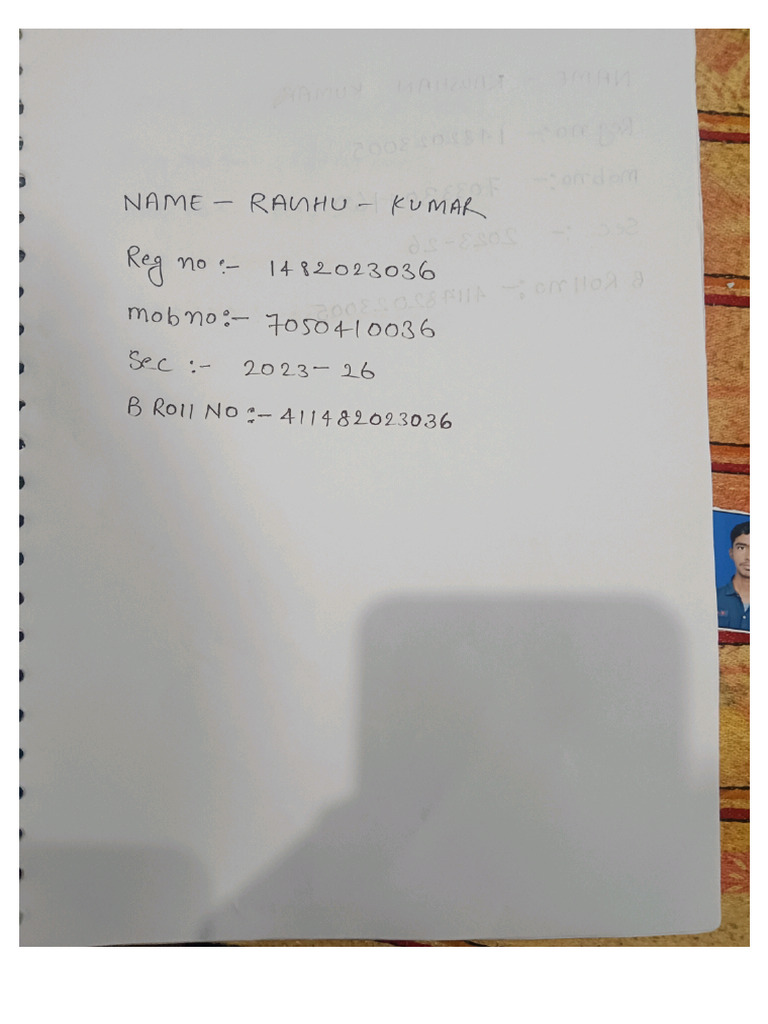 NAME - RAUHU - KUMAR
Reg no :- 1482023036
mob no :- 7050410036
Sec :- 2023-26
B Roll NO :- 411482023036